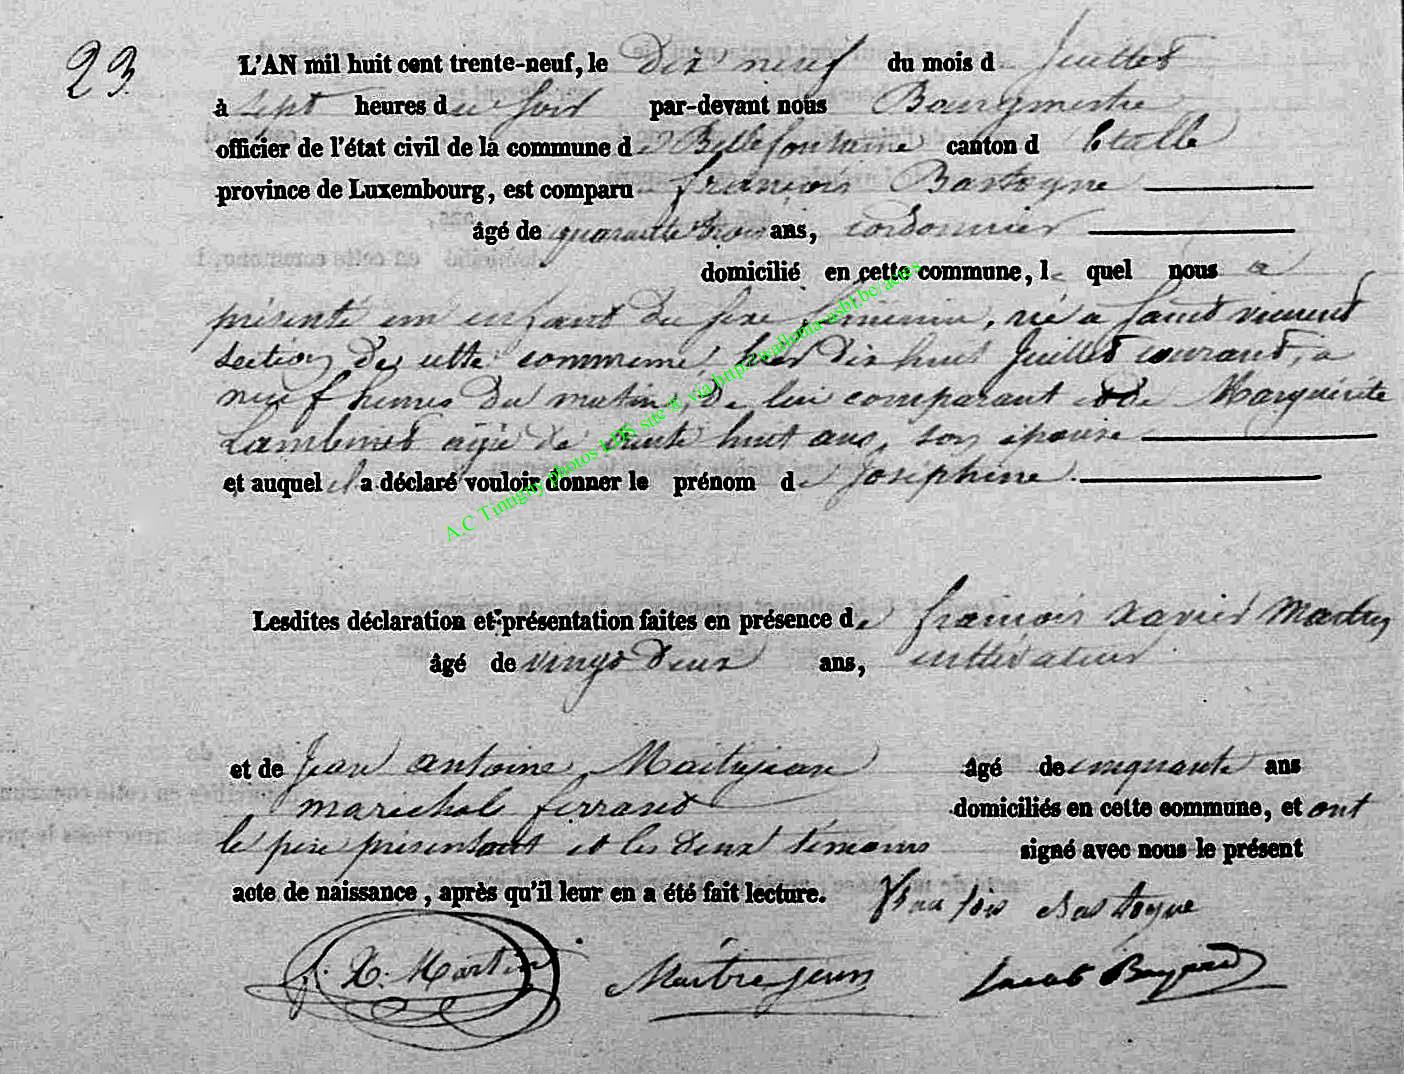 23
L'AN mil huit cent trente-neuf, le Dix neuf du mois d Juillet
à sept heures du soir par-devant nous Bourgmestre
officier de l'état civil de la commune de Bellefontaine canton d Etalle
province de Luxembourg, est comparu françois Bastogne
âgé de quarante trois ans, cordonnier
domicilié en cette commune, le quel nous a
présenté un enfant du sexe féminin, né a Saint vincent
section de cette commune, hier dix huit Juillet courant, a
neuf heures du matin, de lui comparant et de Marguérite
Lambinet agée de trente huit ans, son épouse
et auquel il a déclaré vouloir donner le prénom de Joséphine.
A.C Tintigny photos LDS site & via http://wallonia-asbl.be/actes
Lesdites déclaration et présentation faites en présence de françois Xavier Martin
âgé de vingt deux ans, cultivateur
et de Jean antoine Maitrejean âgé de cinquante ans
marechal ferrant domiciliés en cette commune, et ont
le père présentant et les deux témoins signé avec nous le présent
acte de naissance, après qu'il leur en a été fait lecture. fran sois Bastogne
f. X. Martin Maitrejean Jacob